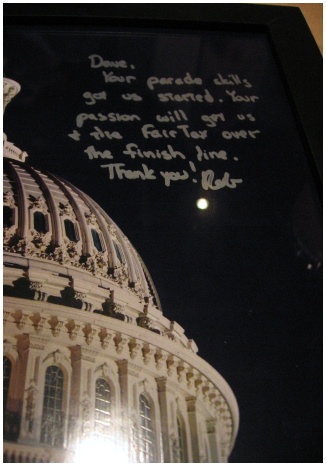 Dave,
Your parade skills
got us started. Your
passion will get us
+ the FairTax over
the finish line.
Thank you! Rob